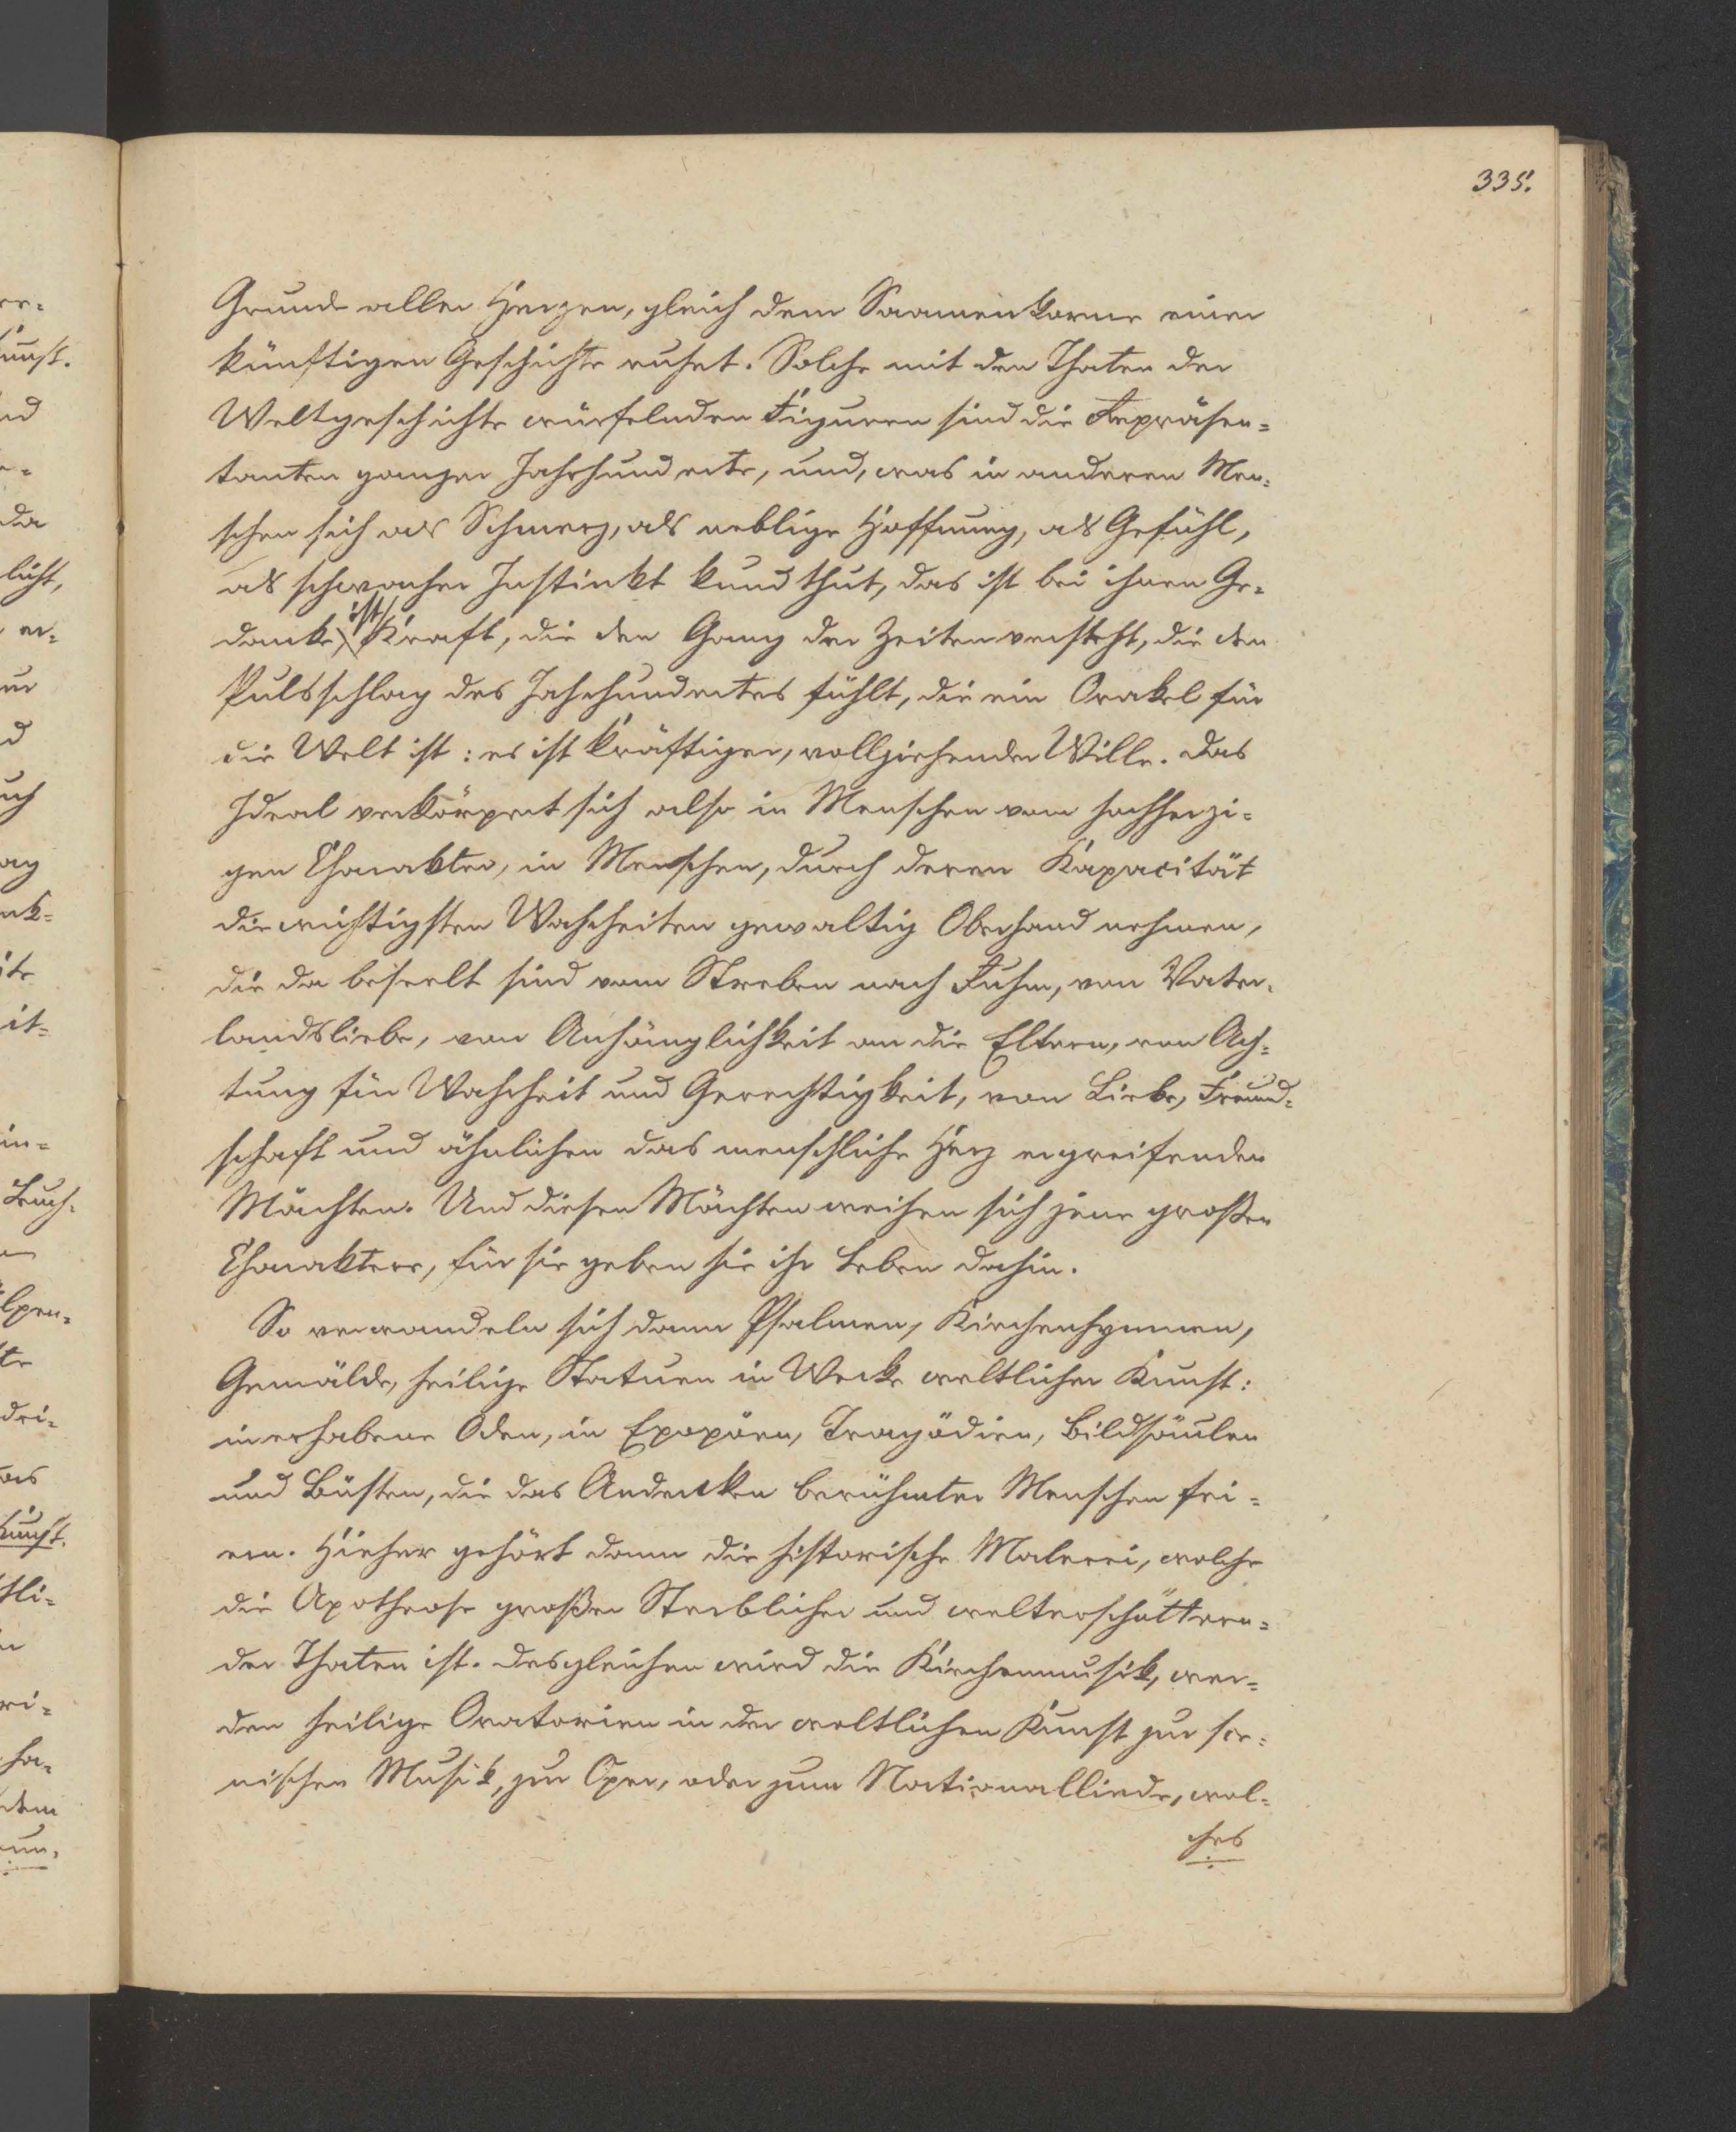 335.
Grunde aller Herzen, gleich dem Saamenkorne einer
künftigen Geschichte ruhet. Solche mit den Thaten der
Weltgeschichte würfelnden Figuren sind die Repräsen=
tanten ganzer Jahrhunderte, und, was in anderen Men=
schen sich als Schmerz, als neblige Hoffnung, als Gefühl,
als schwacher Instinkt kund thut, das ist bei ihnen Ge=
danke, ist Kraft, die den Gang der Zeiten versteht, die den
Pulsschlag des Jahrhundertes fühlt, die ein Orakel für
die Welt ist: es ist kräftiger, vollziehender Wille. Das
Ideal verkörpert sich also in Menschen vom hochherzi=
gen Charakter, in Menschen, durch deren Kapacität
die wichtigsten Wahrheiten gewaltig Oberhand nehmen,
die da beseelt sind vom Streben nach Ruhm, von Vater=
landsliebe, von Anhänglichkeit an die Eltern, von Ach=
tung für Wahrheit und Gerechtigkeit, von Liebe, Freund=
schaft und ähnlichen das menschliche Herz ergreifenden
Mächten. Und diesen Mächten weihen sich jene großen
Charaktere, für sie geben sie ihr Leben dahin.
So verwandeln sich dann Psalmen, Kirchenhymnen,
Gemälde, heilige Statuen in Werke weltlicher Kunst:
in erhabene Oden, in Epopöen, Tragödien, Bildsäulen
und Büsten, die das Andenken berühmter Menschen fei=
ern. Hieher gehört dann die historische Malerei, welche
die Apotheose großer Sterblicher und welterschüttern=
der Thaten ist. Desgleichen wird die Kirchenmusik, wer=
den heilige Oratorien in der weltlichen Kunst zur sce=
nischen Musik, zur Oper, oder zum Nationalliede, wel=
ches